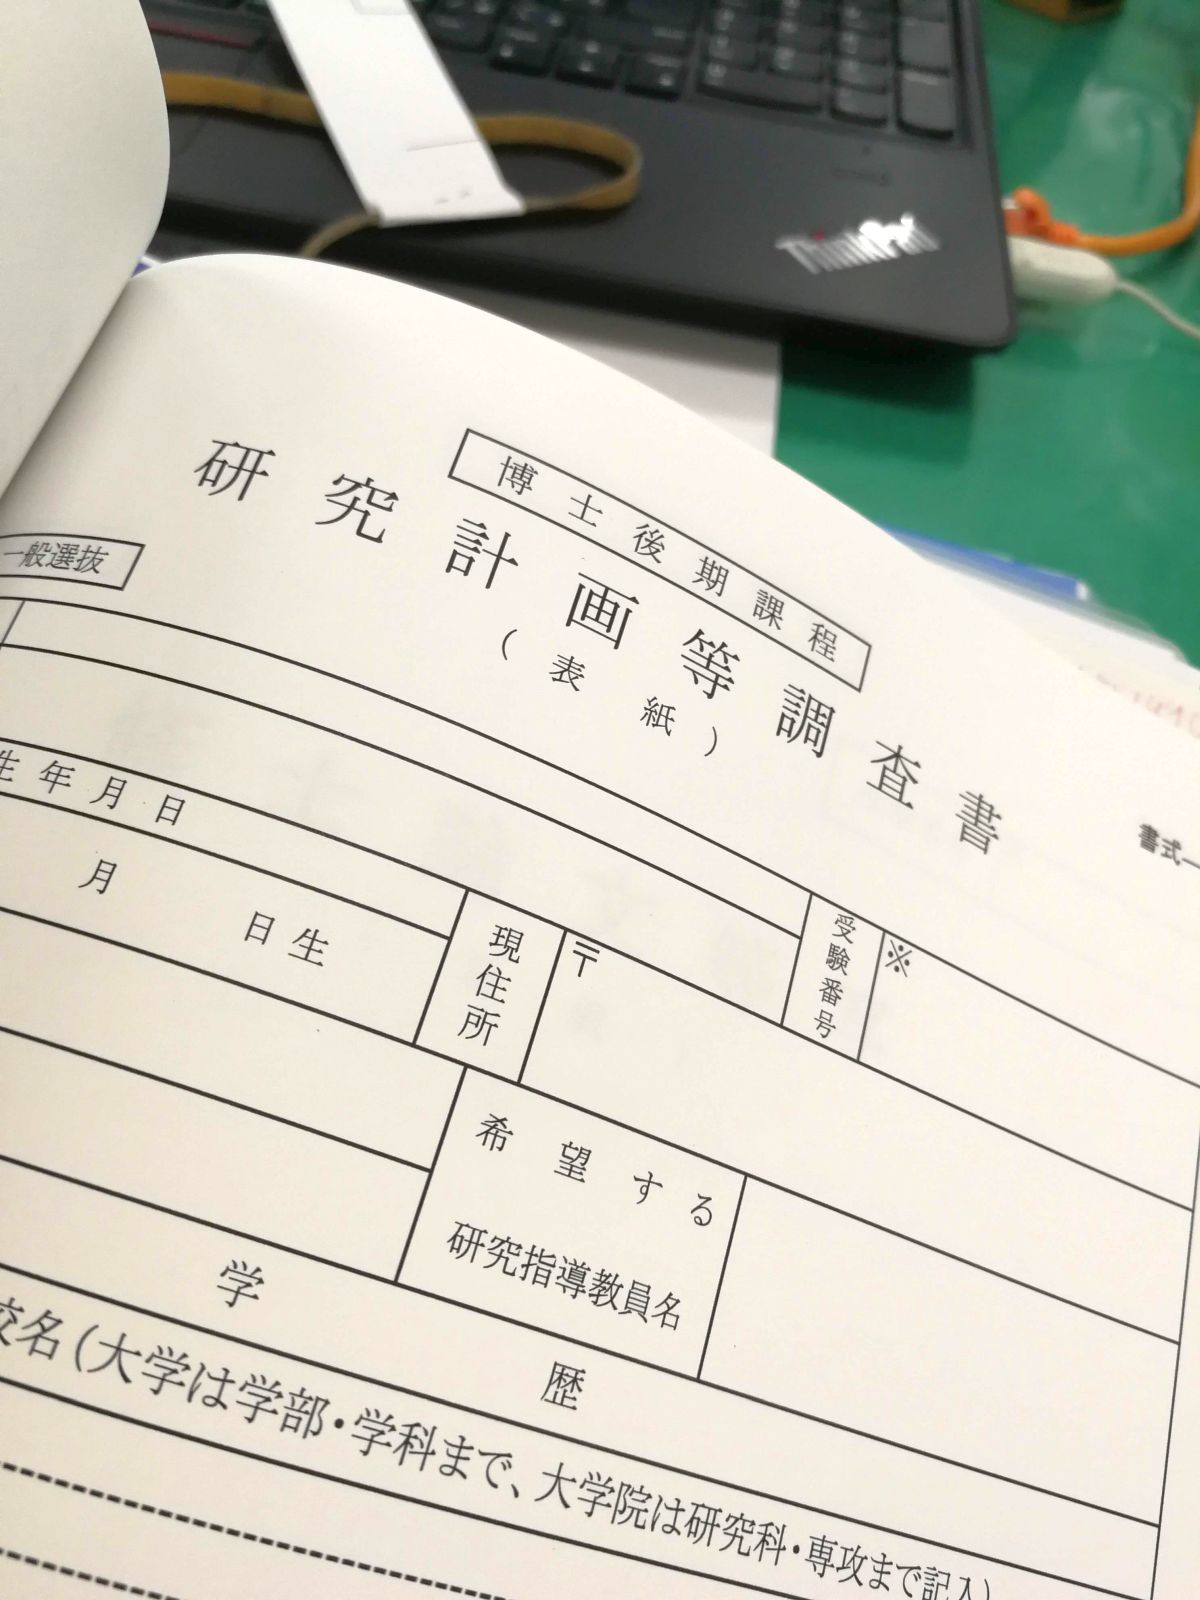 ThinkPad
博士後期課程
研究計画等調査書
(表紙)
書式一
一般選抜
受験番号
※
生年月日
月 日生
現住所
〒
希望する
研究指導教員名
学歴
校名(大学は学部・学科まで、大学院は研究科・専攻まで記入)